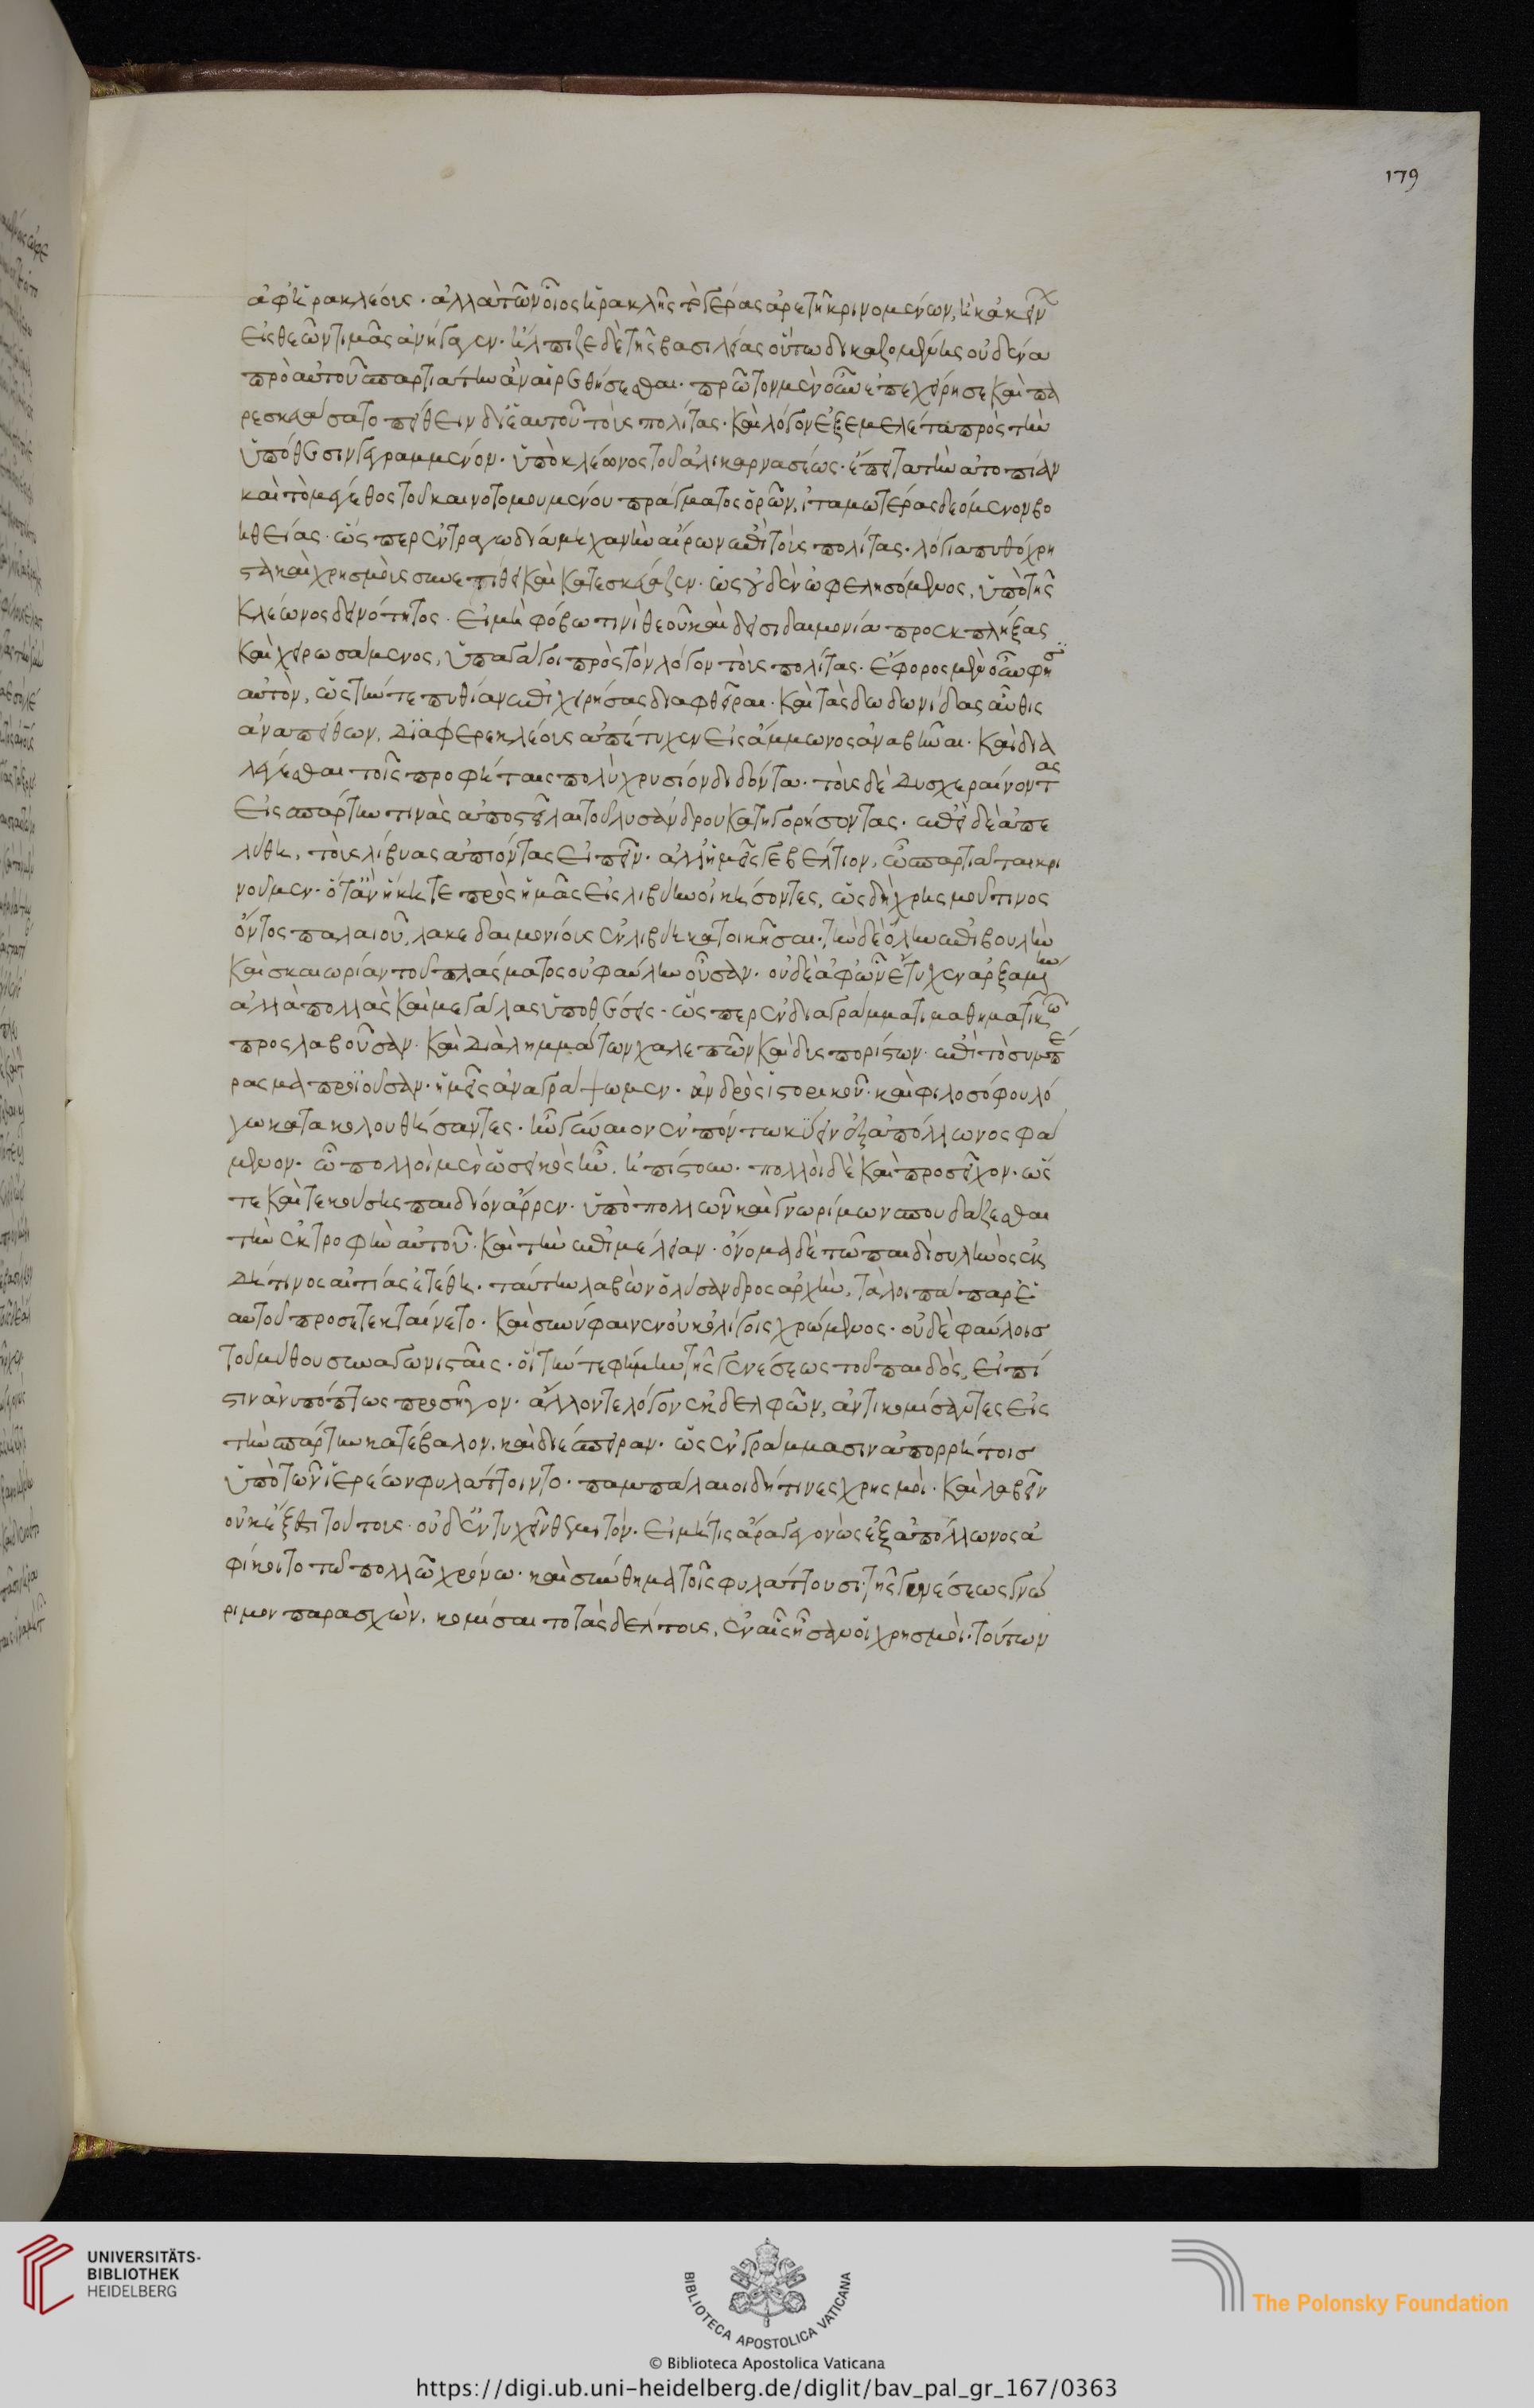 ἀφ' ἡρακλέους· ἀλλὰ τῶν οἷος ἡρακλῆς τὸ γέρας ἀρετῇ κρινομένων, ἣ κἀκεῖνον
εἰς θεῶν τιμὰς ἀνήγαγεν· ἤλπιζε δὲ τῆς βασιλείας οὕτω δικαζομένης οὐδένα
πρὸ αὐτοῦ σπαρτιάτην ἂν αἱρεθήσεσθαι· πρῶτον μὲν οὖν ἐπεχείρησε καὶ πα
ρεσκευάσατο πείθειν δι' ἑαυτοῦ τοὺς πολίτας· καὶ λόγον ἐξεμελέτα πρὸς τὴν
ὑπόθεσιν γεγραμμένον· ὑπὸ κλέωνος τοῦ ἁλικαρνασέως· ἔπειτα τὴν ἀτοπίαν
καὶ τὸ μέγεθος τοῦ καινοτομουμένου πράγματος ὁρῶν, ἰταμωτέρας δεόμενον βο
ηθείας· ὥσπερ ἐν τραγωδία μηχανὴν αἴρων ἐπὶ τοὺς πολίτας· λόγια πυθόχρη
στα καὶ χρησμοὺς συνετίθει καὶ κατεσκεύαζεν· ὡς οὐδὲν ὠφελησόμενος, ὑπὸ τῆς
κλέωνος δεινότητος· εἰ μὴ φόβω τινὶ θεοῦ καὶ δεισιδαιμονία προεκπλήξας
καὶ χειρωσάμενος, ὑπαγάγοι πρὸς τὸν λόγον τοὺς πολίτας· ἔφορος μὲν οὖν φησιν
αὐτὸν, ὡς τήν τε πυθίαν ἐπιχειρήσας διαφθεῖραι· καὶ τὰς δωδωνίδας αὖθις
ἀναπείθων, διὰ φερεκλέους ἀπέτυχεν εἰς ἄμμωνος ἀναβῆναι· καὶ δια
λέγεσθαι τοῖς προφήταις πολὺ χρυσίον διδόντα· τοὺς δὲ δυσχεραίνοντας
εἰς σπάρτην τινὰς ἀποστεῖλαι τοῦ λυσάνδρου κατηγορήσοντας· ἐπεὶ δὲ ἀπε
λύθη, τοὺς λίβυας ἀπιόντας εἰπεῖν· ἀλλ' ἡμεῖς γε βέλτιον, ὦ σπαρτιάται κρι
νοῦμεν· ὅταν ἥκητε πρὸς ἡμᾶς εἰς λιβύην οἰκήσοντες, ὡς δὴ χρησμοῦ τινος
ὄντος παλαιοῦ, λακεδαιμονίους ἐν λιβύη κατοικῆσαι· τὴν δὲ ὅλην ἐπιβουλὴν
καὶ σκαιωρίαν τοῦ πλάσματος οὐ φαύλην οὖσαν· οὐδὲ ἀφ' ὧν ἔτυχεν ἀρξαμένην
ἀλλὰ πολλὰς καὶ μεγάλας ὑποθέσεις· ὥσπερ ἐν διαγράμματι μαθηματικῶ
προσλαβοῦσαν· καὶ διὰ λημμάτων χαλεπῶν καὶ δυσπορίστων· ἐπὶ τὸ συμπέ
ρασμα προϊοῦσαν· ἡμεῖς ἀναγράψωμεν· ἀνδρὸς ἱστορικοῦ· καὶ φιλοσόφου λό
γω κατακολουθήσαντες· ἦν γύναιον ἐν πόντω κύειν ἐξ ἀπόλλωνος φά
μενον· ὧ πολλοὶ μὲν ὡς εἰκὸς ἦν, ἠπίστουν· πολλοὶ δὲ καὶ προσεῖχον· ὥς
τε καὶ τεκούσης παιδίον ἄρρεν· ὑπὸ πολλῶν καὶ γνωρίμων σπουδάζεσθαι
τὴν ἐκτροφὴν αὐτοῦ· καὶ τὴν ἐπιμέλειαν· ὄνομα δὲ τῶ παιδὶ σιληνὸς ἐκ
δή τινος αἰτίας ἐτέθη· ταύτην λαβὼν ὁ λύσανδρος ἀρχὴν, τὰ λοιπὰ παρ' ἑ
αυτοῦ προσετεκταίνετο· καὶ συνύφαινεν οὐκ ὀλίγοις χρώμενος· οὐδὲ φαύλοις
τοῦ μύθου συναγωνισταῖς· οἳ τήν τε φήμην τῆς γενέσεως τοῦ παιδὸς, εἰς πί
στιν ἀνυπόπτως προσῆγον· ἄλλον τε λόγον ἐκ δελφῶν, ἀντικομίσαντες εἰς
τὴν σπάρτην κατέβαλον, καὶ διέσπειραν· ὡς ἐν γράμμασιν ἀπορρήτοις
ὑπὸ τῶν ἱερέων φυλάττοιντο· παμπάλαιοι δή τινες χρησμοὶ· καὶ λαβεῖν
οὐκ ἔξεστι τούτους· οὐδ' ἐντυχεῖν θεμιτὸν· εἰ μή τις ἄρα γεγονὼς ἐξ ἀπόλλωνος ἀ
φίκοιτο τῶ πολλῶ χρόνω· καὶ σύνθημα τοῖς φυλάττουσι τῆς γενέσεως γνώ
ριμον παρασχὼν, κομίσαιτο τὰς δέλτους, ἐν αἷς ἦσαν οἱ χρησμοὶ· τούτων
179
UNIVERSITÄTS-
BIBLIOTHEK
HEIDELBERG
BIBLIOTECA APOSTOLICA VATICANA
The Polonsky Foundation
© Biblioteca Apostolica Vaticana
https://digi.ub.uni-heidelberg.de/diglit/bav_pal_gr_167/0363